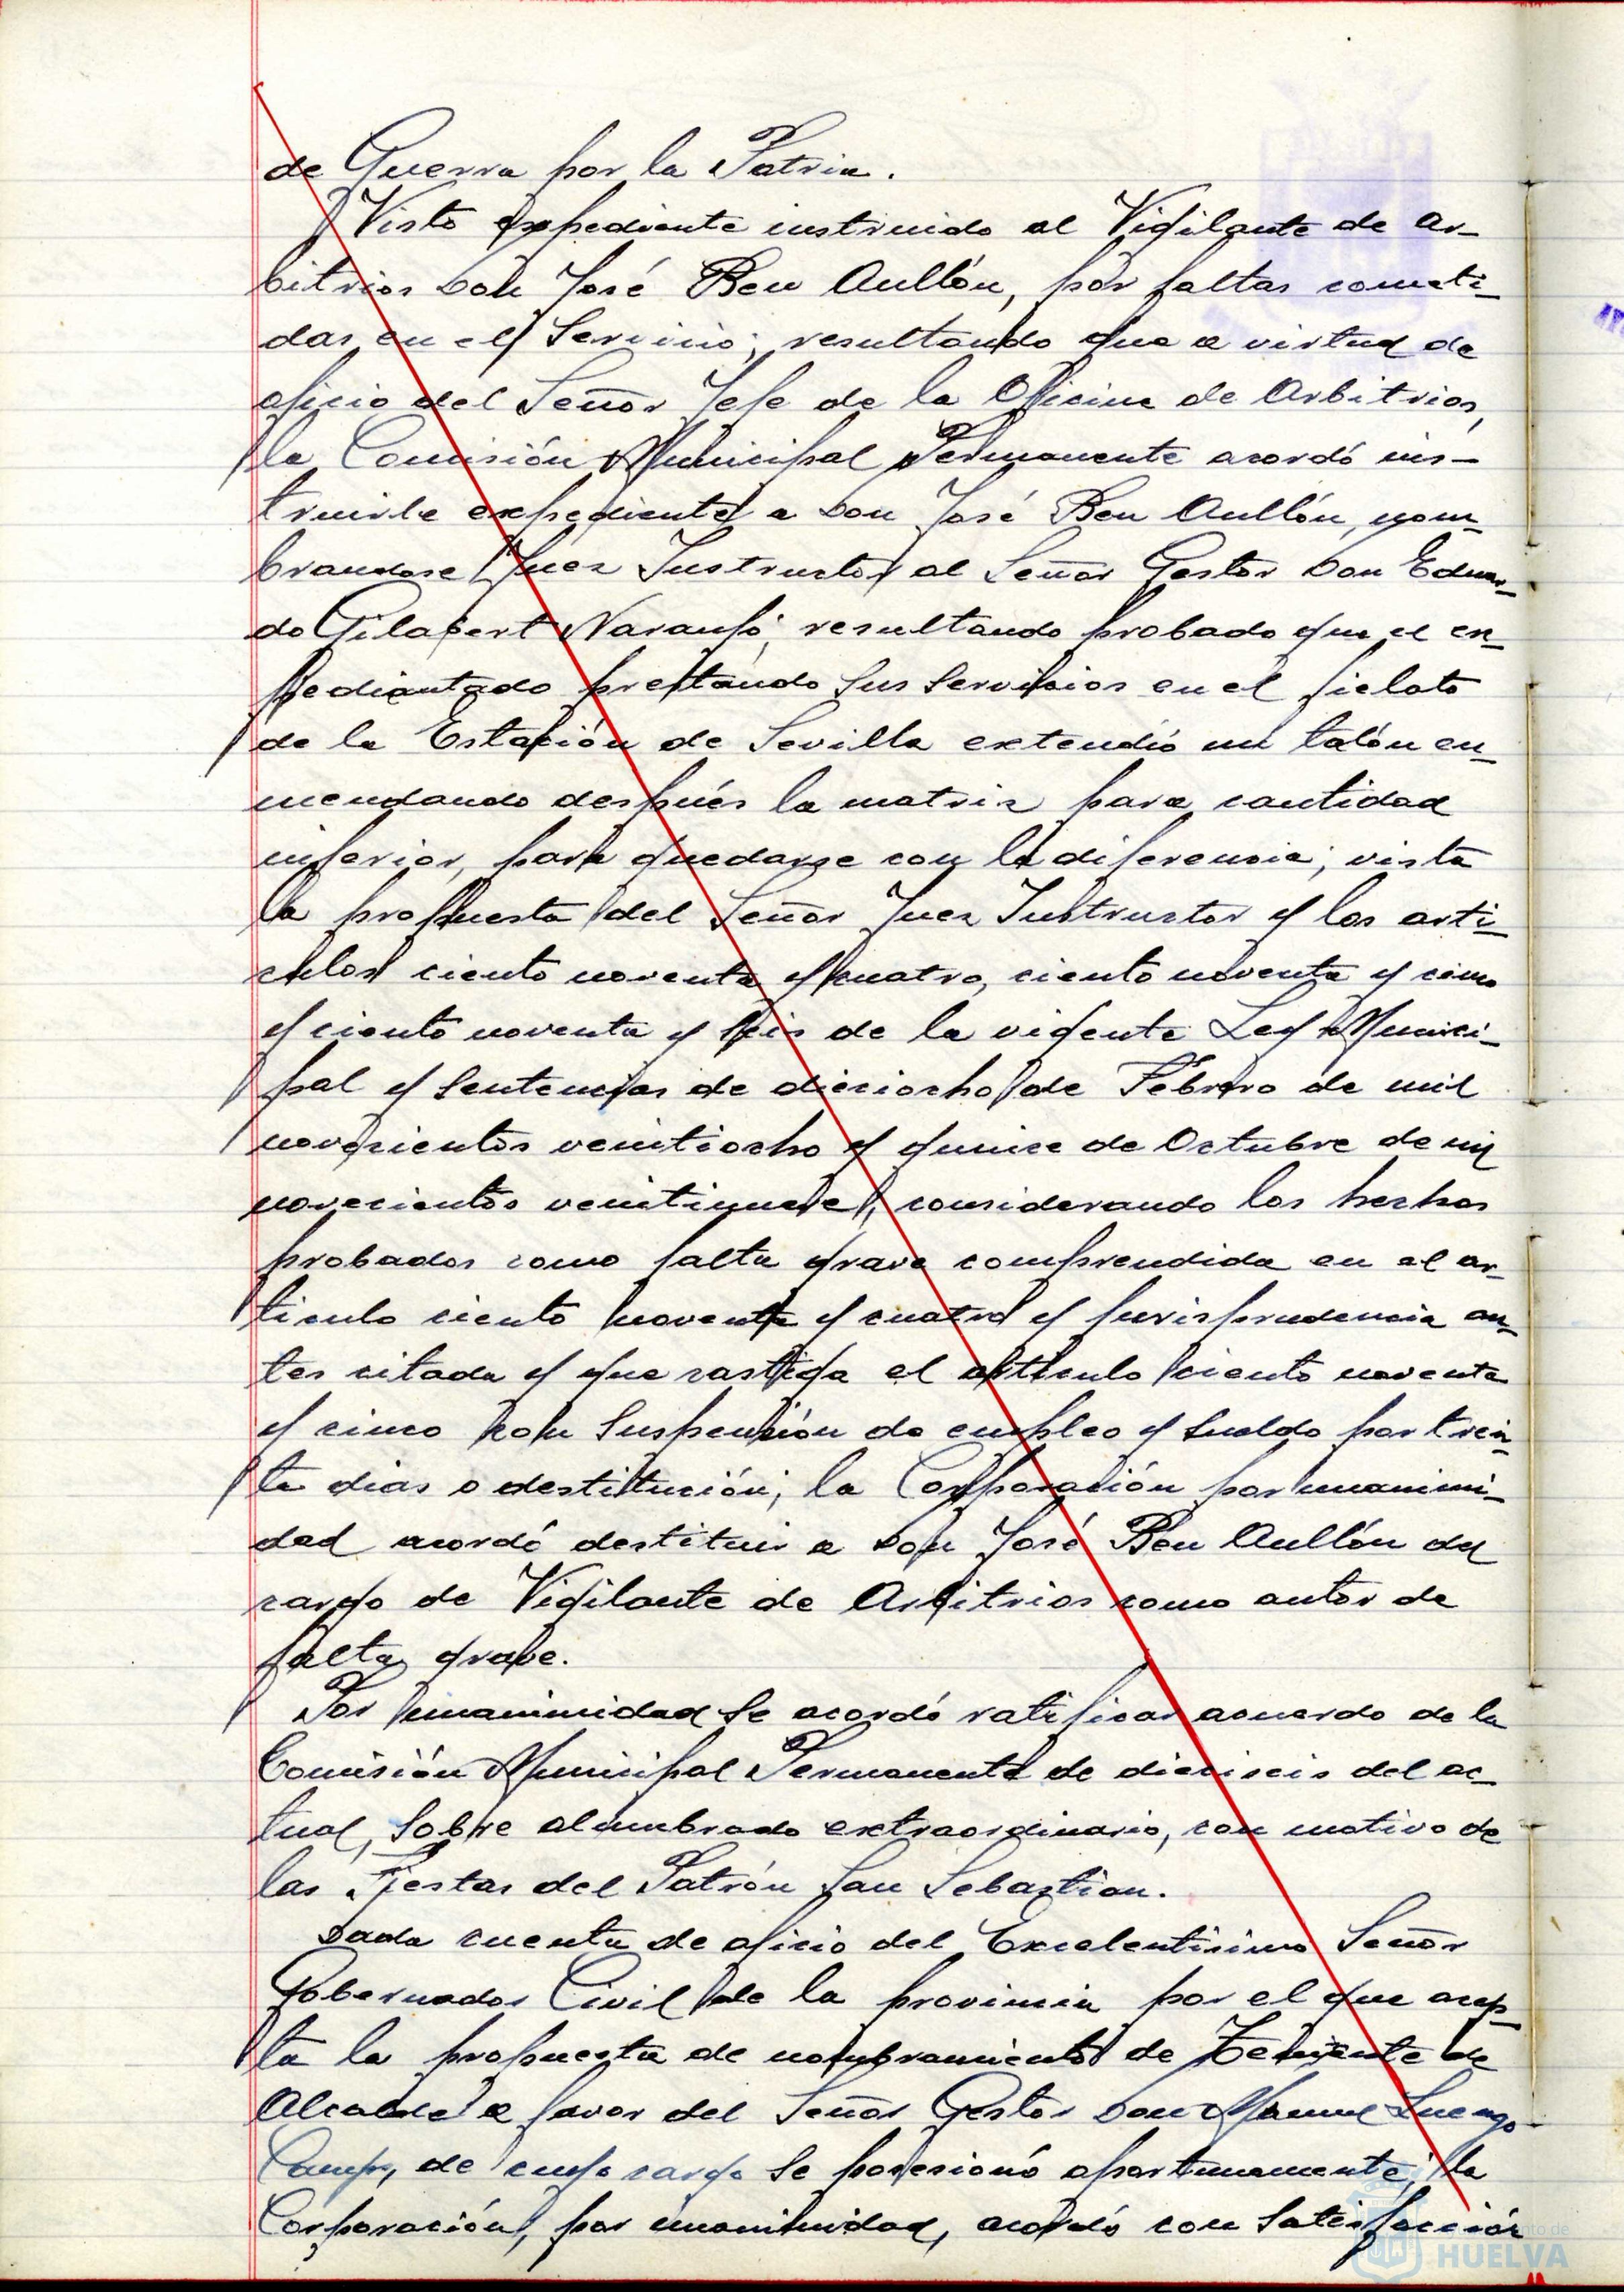 de Guerra por la Patria.
Visto expediente instruido al Vigilante de Ar-
bitrios Don José Beu Aullón, por faltas cometi-
das en el servicio; resultando que a virtud de
oficio del Señor Jefe de la Oficina de Arbitrios,
la Comisión Municipal Permanente acordó ins-
truirle expediente a Don José Beu Aullón, nom-
brandose Juez Instructor al Señor Gestor Don Eduar-
do Gilabert Naranjo; resultando probado que el ex-
pedientado prestando sus servicios en el fielato
de la Estación de Sevilla extendió un talón en-
mendando después la matriz para cantidad
inferior, para quedarse con la diferencia; vista
la propuesta del Señor Juez Instructor y los arti-
culos ciento noventa y cuatro, ciento noventa y cinco
y ciento noventa y seis de la vigente Ley Munici-
pal y sentencias de dieciocho de Febrero de mil
novecientos veintiocho y quince de Octubre de mil
novecientos veintinueve; considerando los hechos
probados como falta grave comprendida en el ar-
ticulo ciento noventa y cuatro y jurisprudencia an-
tes citada y que castiga el artículo ciento noventa
y cinco con suspensión de empleo y sueldo por trein-
ta dias o destitución; la Corporación por unanimi-
dad acordó destituir a Don José Beu Aullón del
cargo de Vigilante de Arbitrios como autor de
falta grave.
Por unanimidad se acordó ratificar acuerdo de la
Comisión Municipal Permanente de dieciseis del ac-
tual, sobre alumbrado extraordinario, con motivo de
las Fiestas del Patrón San Sebastian.
Dada cuenta de oficio del Excelentisimo Señor
Gobernador Civil de la provincia por el que acep-
ta la propuesta de nombramiento de Teniente de
Alcalde a favor del Señor Gestor Don Manuel Luengo
de cuyo cargo se posesionó oportunamente; la
Corporación, por unanimidad, acordó con satisfacción
HUELVA